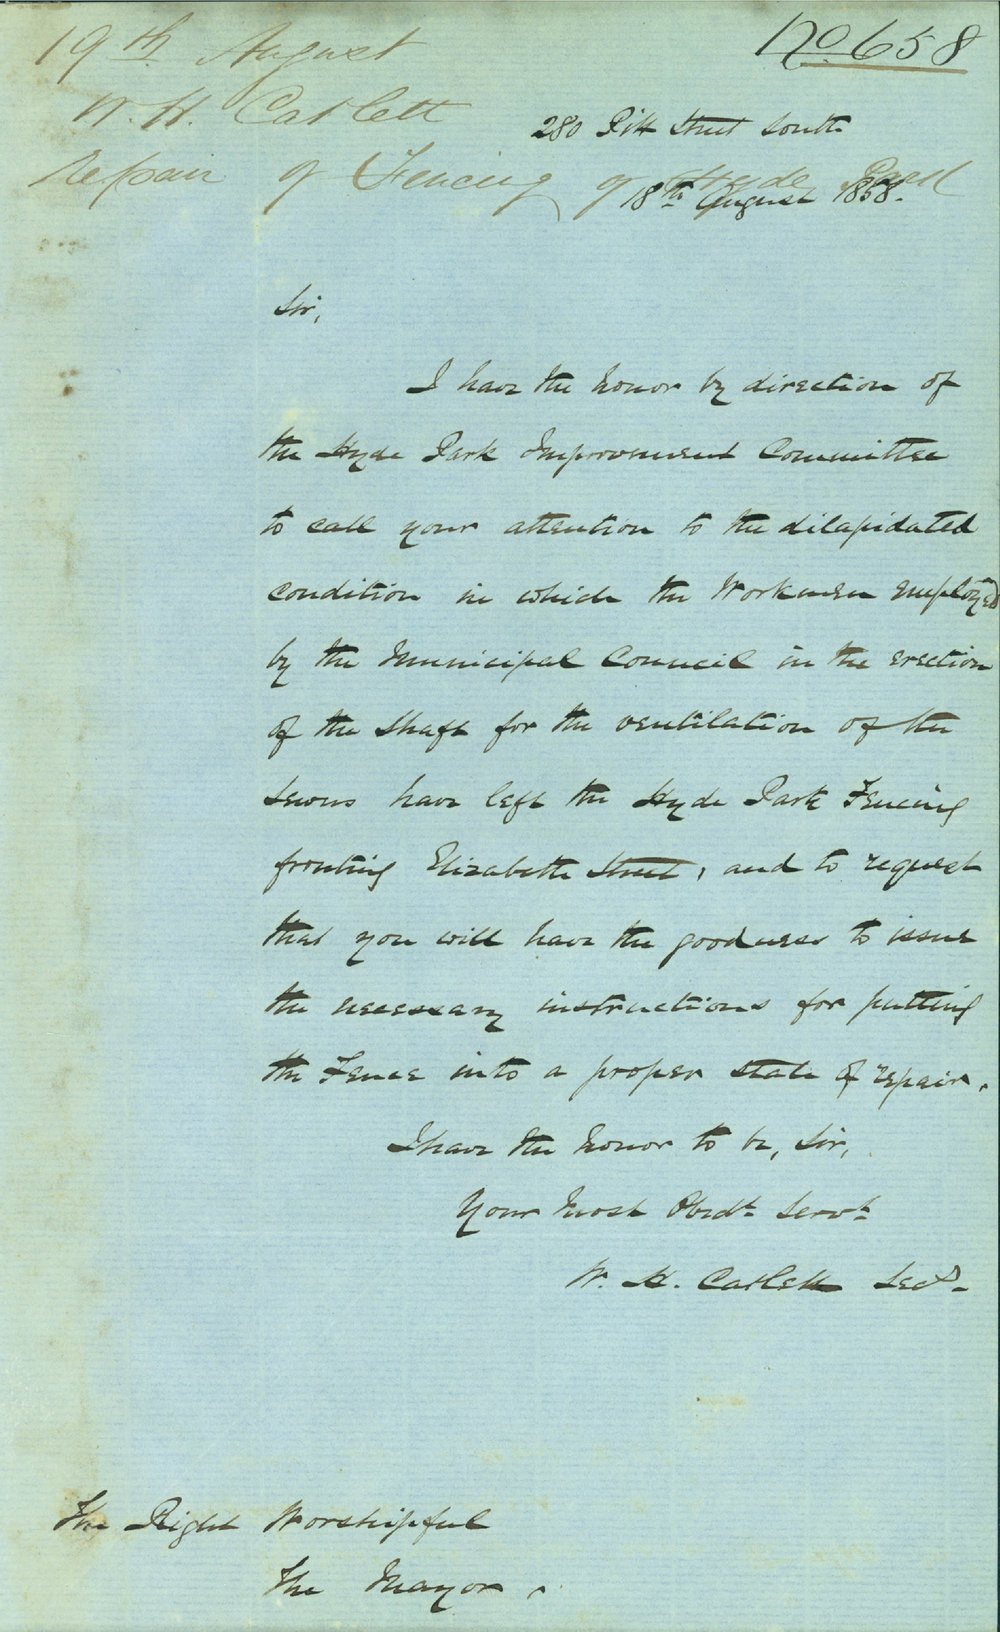 19th August
No 658
W. H. Catlett
280 Pitt Street South
Repair of Fencing of Hyde Park
18th August 1858.
Sir,
I have the honor by direction of
the Hyde Park Improvement Committee
to call your attention to the dilapidated
condition in which the Workmen employed
by the Municipal Council in the erection
of the Shaft for the ventilation of the
Sewers have left the Hyde Park Fencing
fronting Elizabeth Street, and to request
that you will have the goodness to issue
the necessary instructions for putting
the Fence into a proper state of repair.
I have the honor to be, Sir,
Your Most Obedt Servt
W. H. Catlett Secy.
The Right Worshipful
The Mayor.